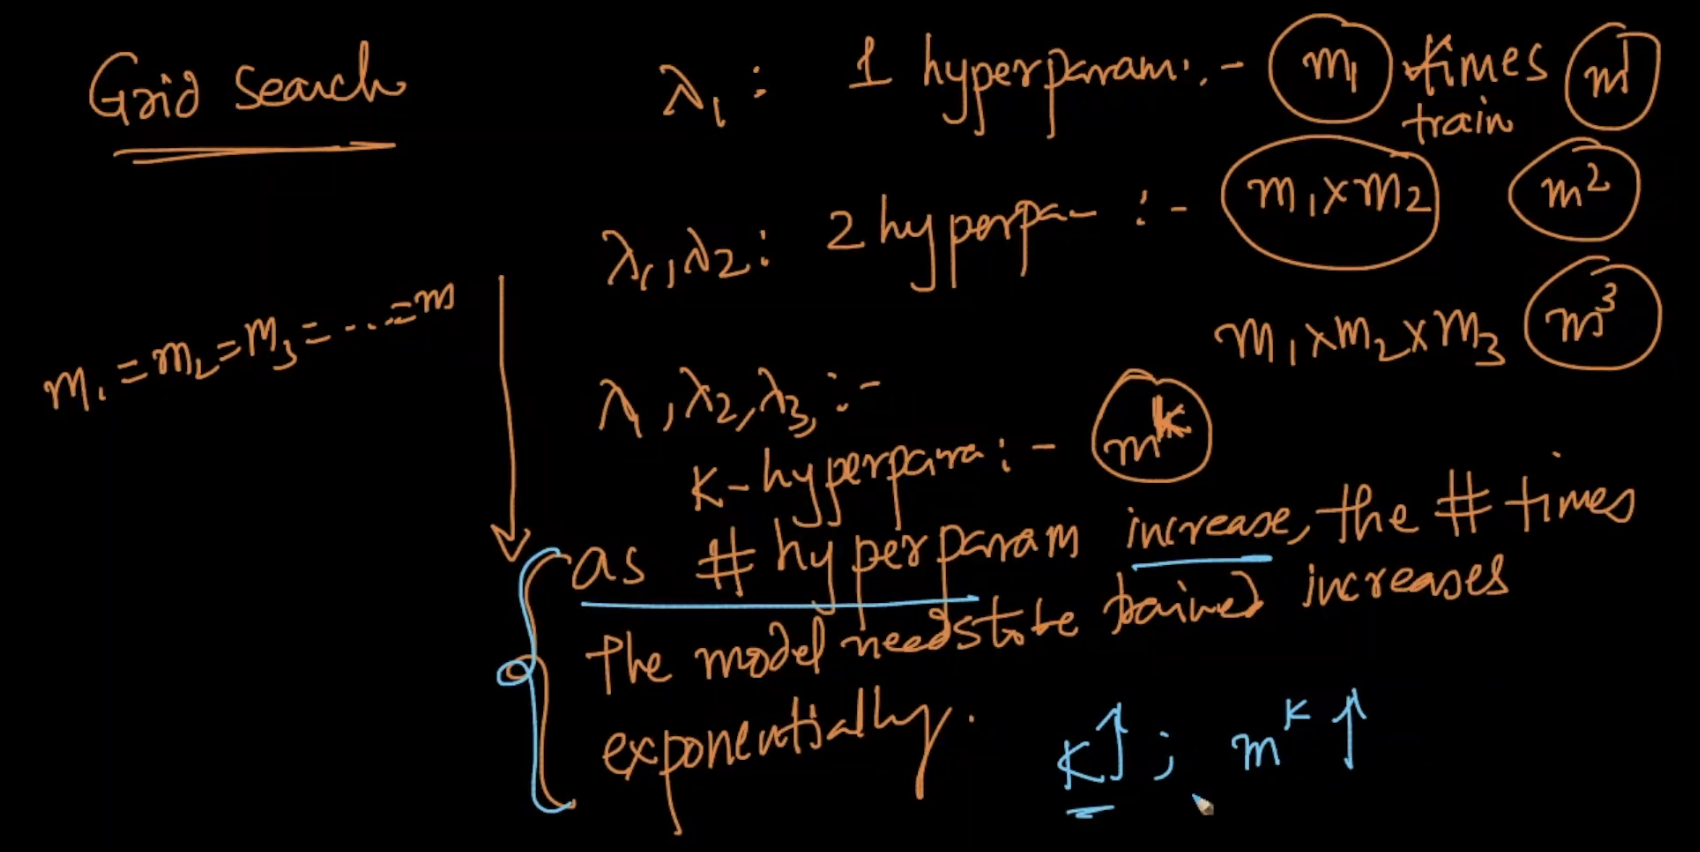 Grid search
λ₁ : 1 hyperparam :- m₁ times train m¹
λ₁, λ₂ : 2 hyperpa- :- m₁ x m₂ m²
m₁ = m₂ = m₃ = ... = m
λ₁, λ₂, λ₃, :- m₁ x m₂ x m₃ m³
K-hyperpara :- mᵏ
as # hyperparam increase, the # times
the model needs to be trained increases
exponentially.
K↑ ; mᴷ ↑